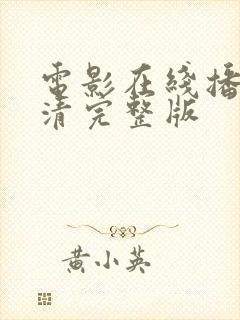 電影在綫播
清完整版
黄小英